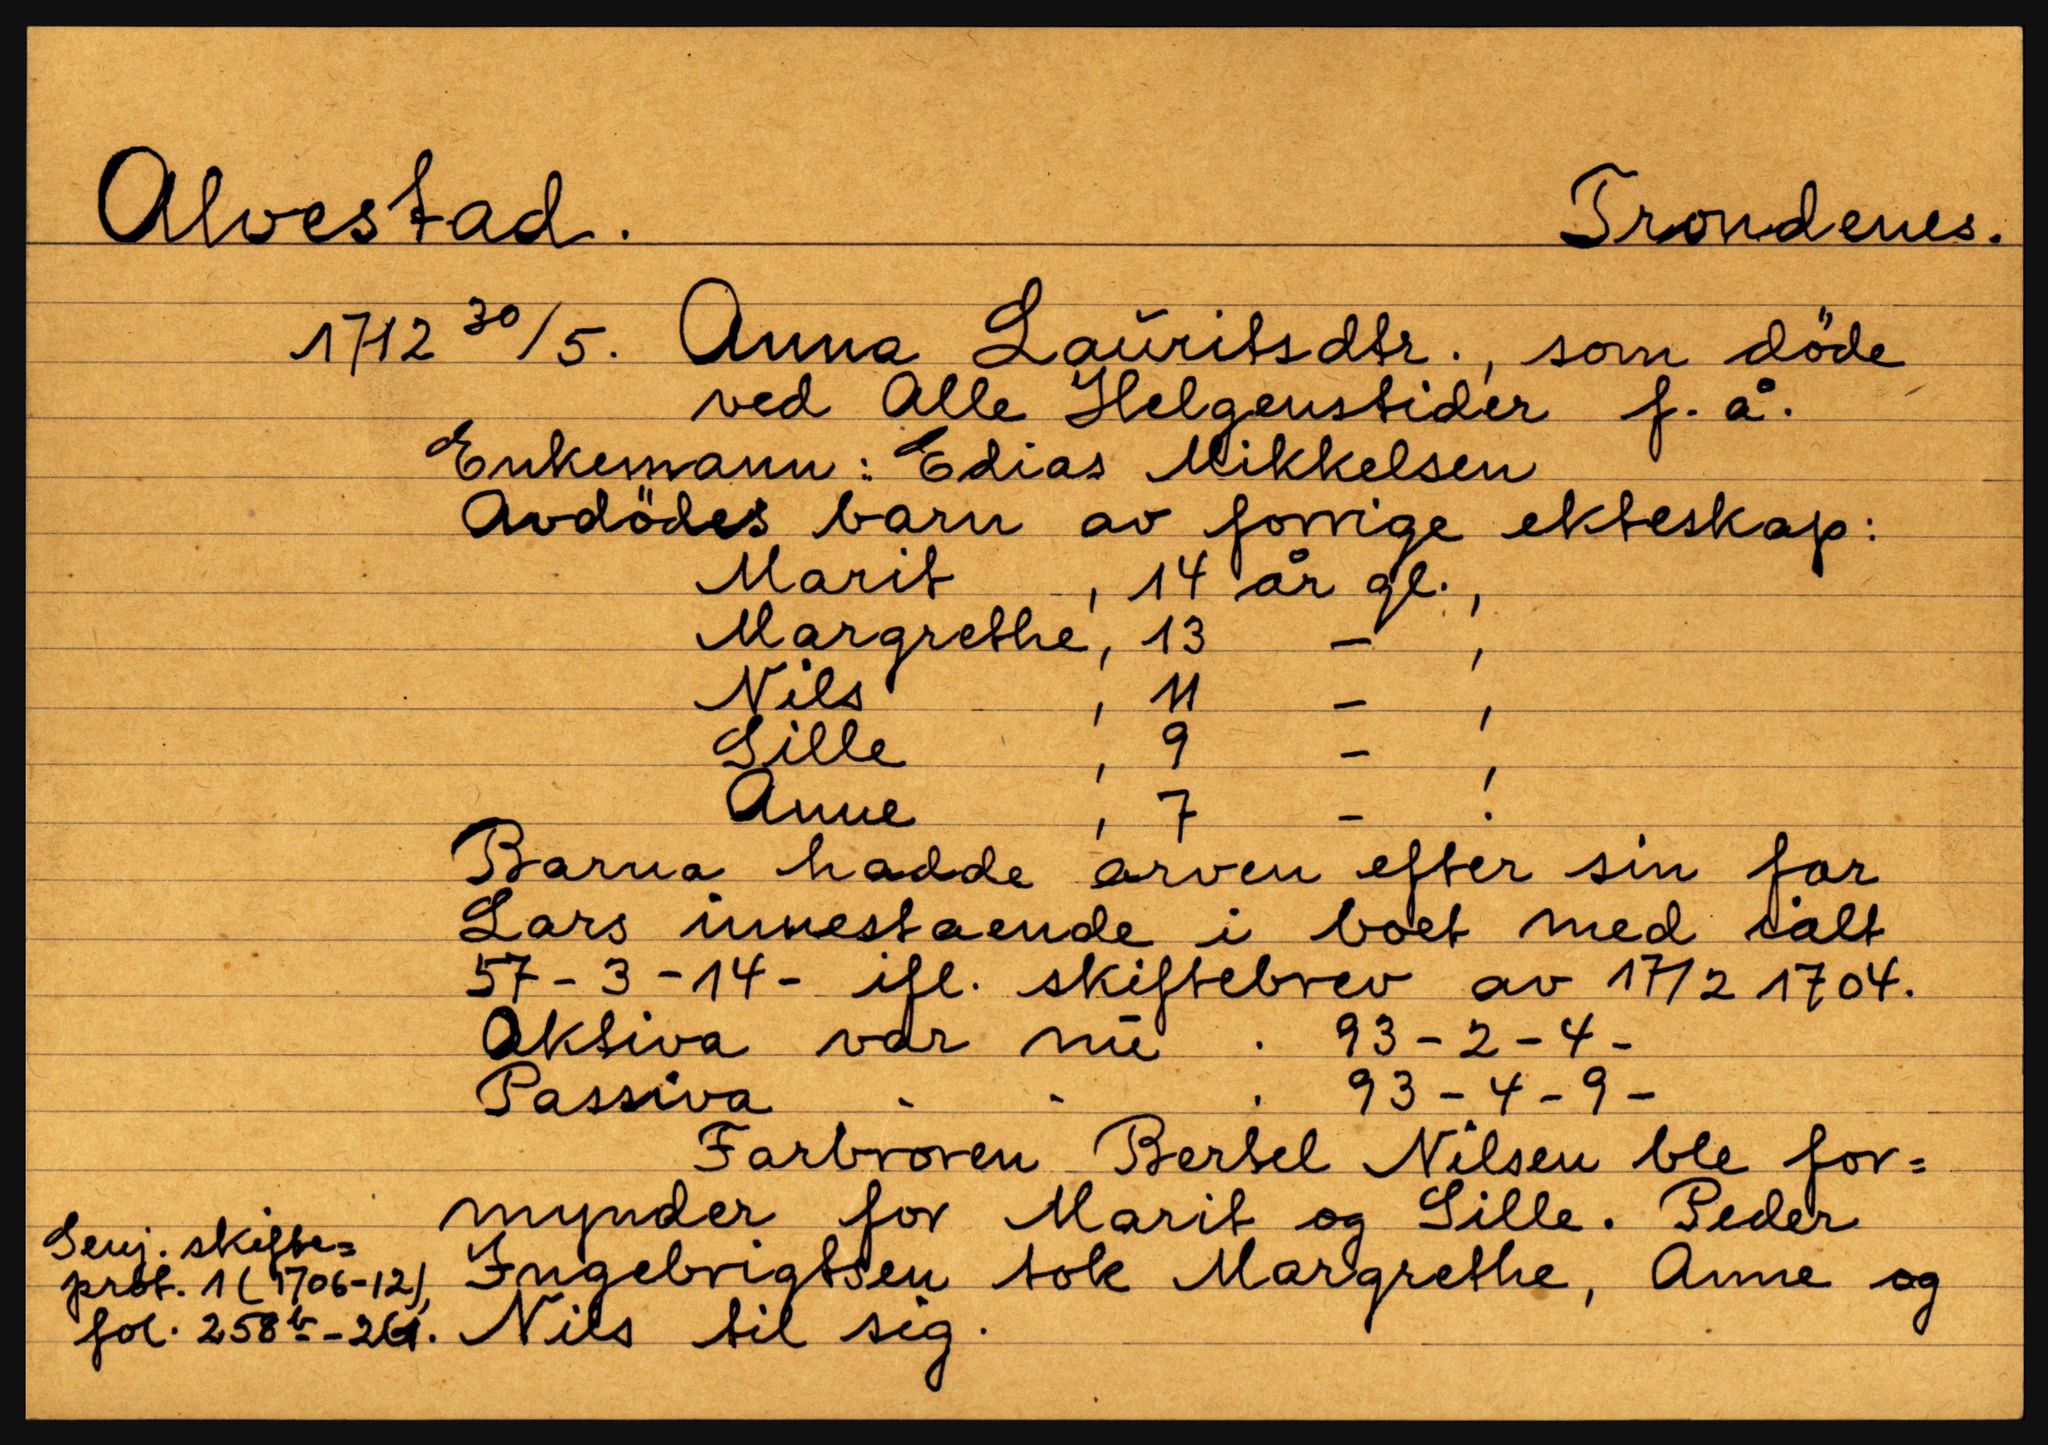 Alvestad. Trondenes.
1712 30/5. Anna Lauritsdtr., som döde
ved Alle Helgenstider f. å.
Enkemann: Edias Mikkelsen
Avdödes barn av forrige ekteskap:
Marit , 14 år gl.,
Margrethe, 13 - ,
Nils , 11 - ,
Sille , 9 - ,
Anne , 7 - .
Barna hadde arven efter sin far
Lars innestaende i boet med ialt
57-3-14- ifl. skiftebrev av 17/2 1704.
Aktiva var nu . 93-2-4-
Passiva - - . 93-4-9-
Farbroren Bertel Nilsen ble for=
mynder for Marit og Sille. Peder
Ingebrigtsen tok Margrethe, Anne og
Nils til sig.
Senj. skifte=
prot. 1 (1706-12),
fol. 258b-261.